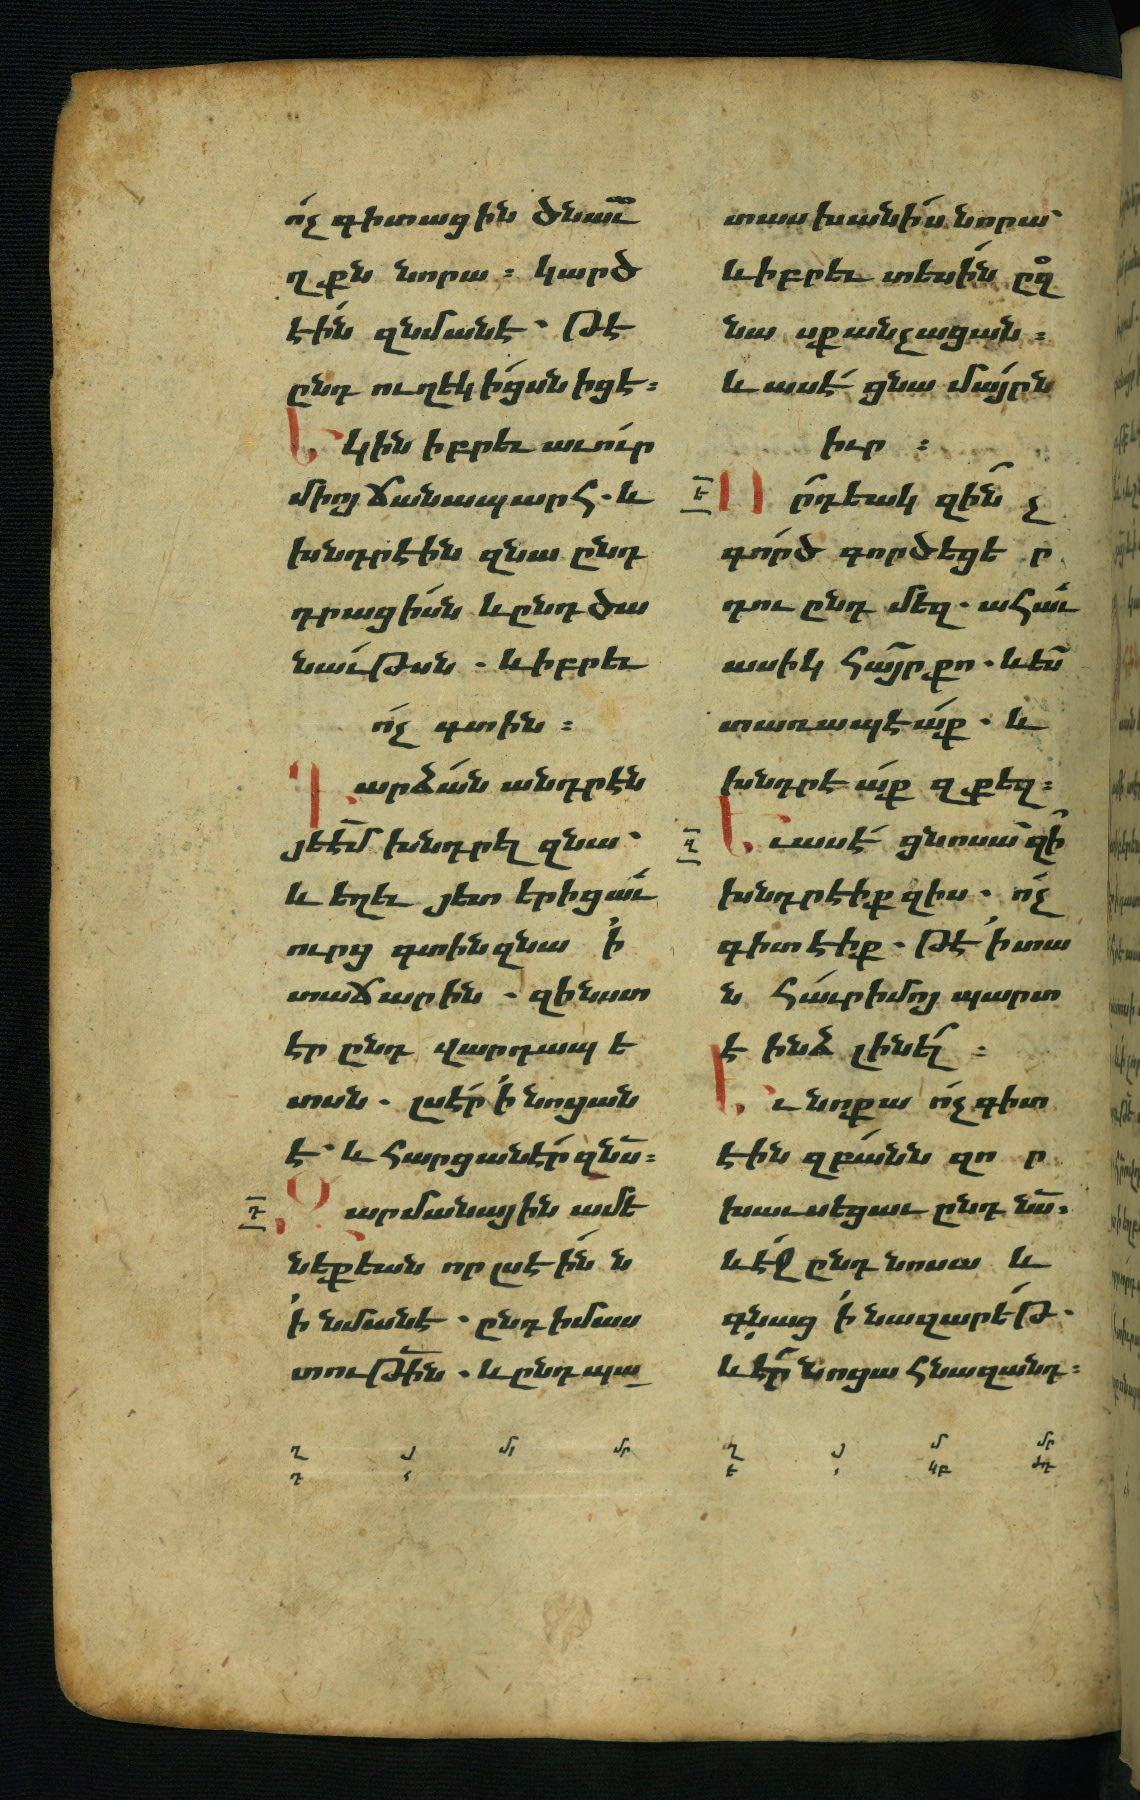 ոչ գիտացին ծնաւղ
ղքն նորա : կարծ
էին զնմանէ ՝ թէ
ընդ ուղեկիցսն իցէ :
Եկին իբրեւ աւուր
միոյ ճանապարհ . և
խնդրէին զնա ընդ
դրացիսն և ընդ ծա
նաւթսն . և իբրեւ
ոչ գտին :
Դարձան անդրէն
յեէմ խնդրել զնա ՝
և եղեւ յետ երից աւ
ուրց գտին զնա ի
տաճարին . զի նստ
էր ընդ վարդապե
տսն . լսէր ի նոցան
է ՝ և հարցանէր զնս :
Դ
Զարմանային ամե
նեքեան որ լսէին ն
ի նմանէ . ընդ իմաս
տութին . և ընդ պա
տասխանիս նորա ՝
և իբրեւ տեսին ըզ
նա սքանչացան :
և ասէ ցնա մայրն
իւր :
Ե
Որդեակ զին չ
գործ գործեցե ր
դու ընդ մեզ . ահաւ
ասիկ հայր քո . և ես
տառապէաք . և
խնդրէաք զքեզ :
Զ
Եւ ասէ ցնոսա զի
խնդրէիք զիս . ոչ
գիտէիք . թէ ի տա
ն հաւր իմոյ պարտ
է ինձ լինել :
Եւ նոքա ոչ գիտ
էին զբանն զո ր
խաւսեցաւ ընդ նս .
և էջ ընդ նոսա և
գնաց ի նազարէթ .
և էր նոցա հնազանդ :
ղ յ մ մր
դ
ղ յ մ մր
ե կբ ժդ